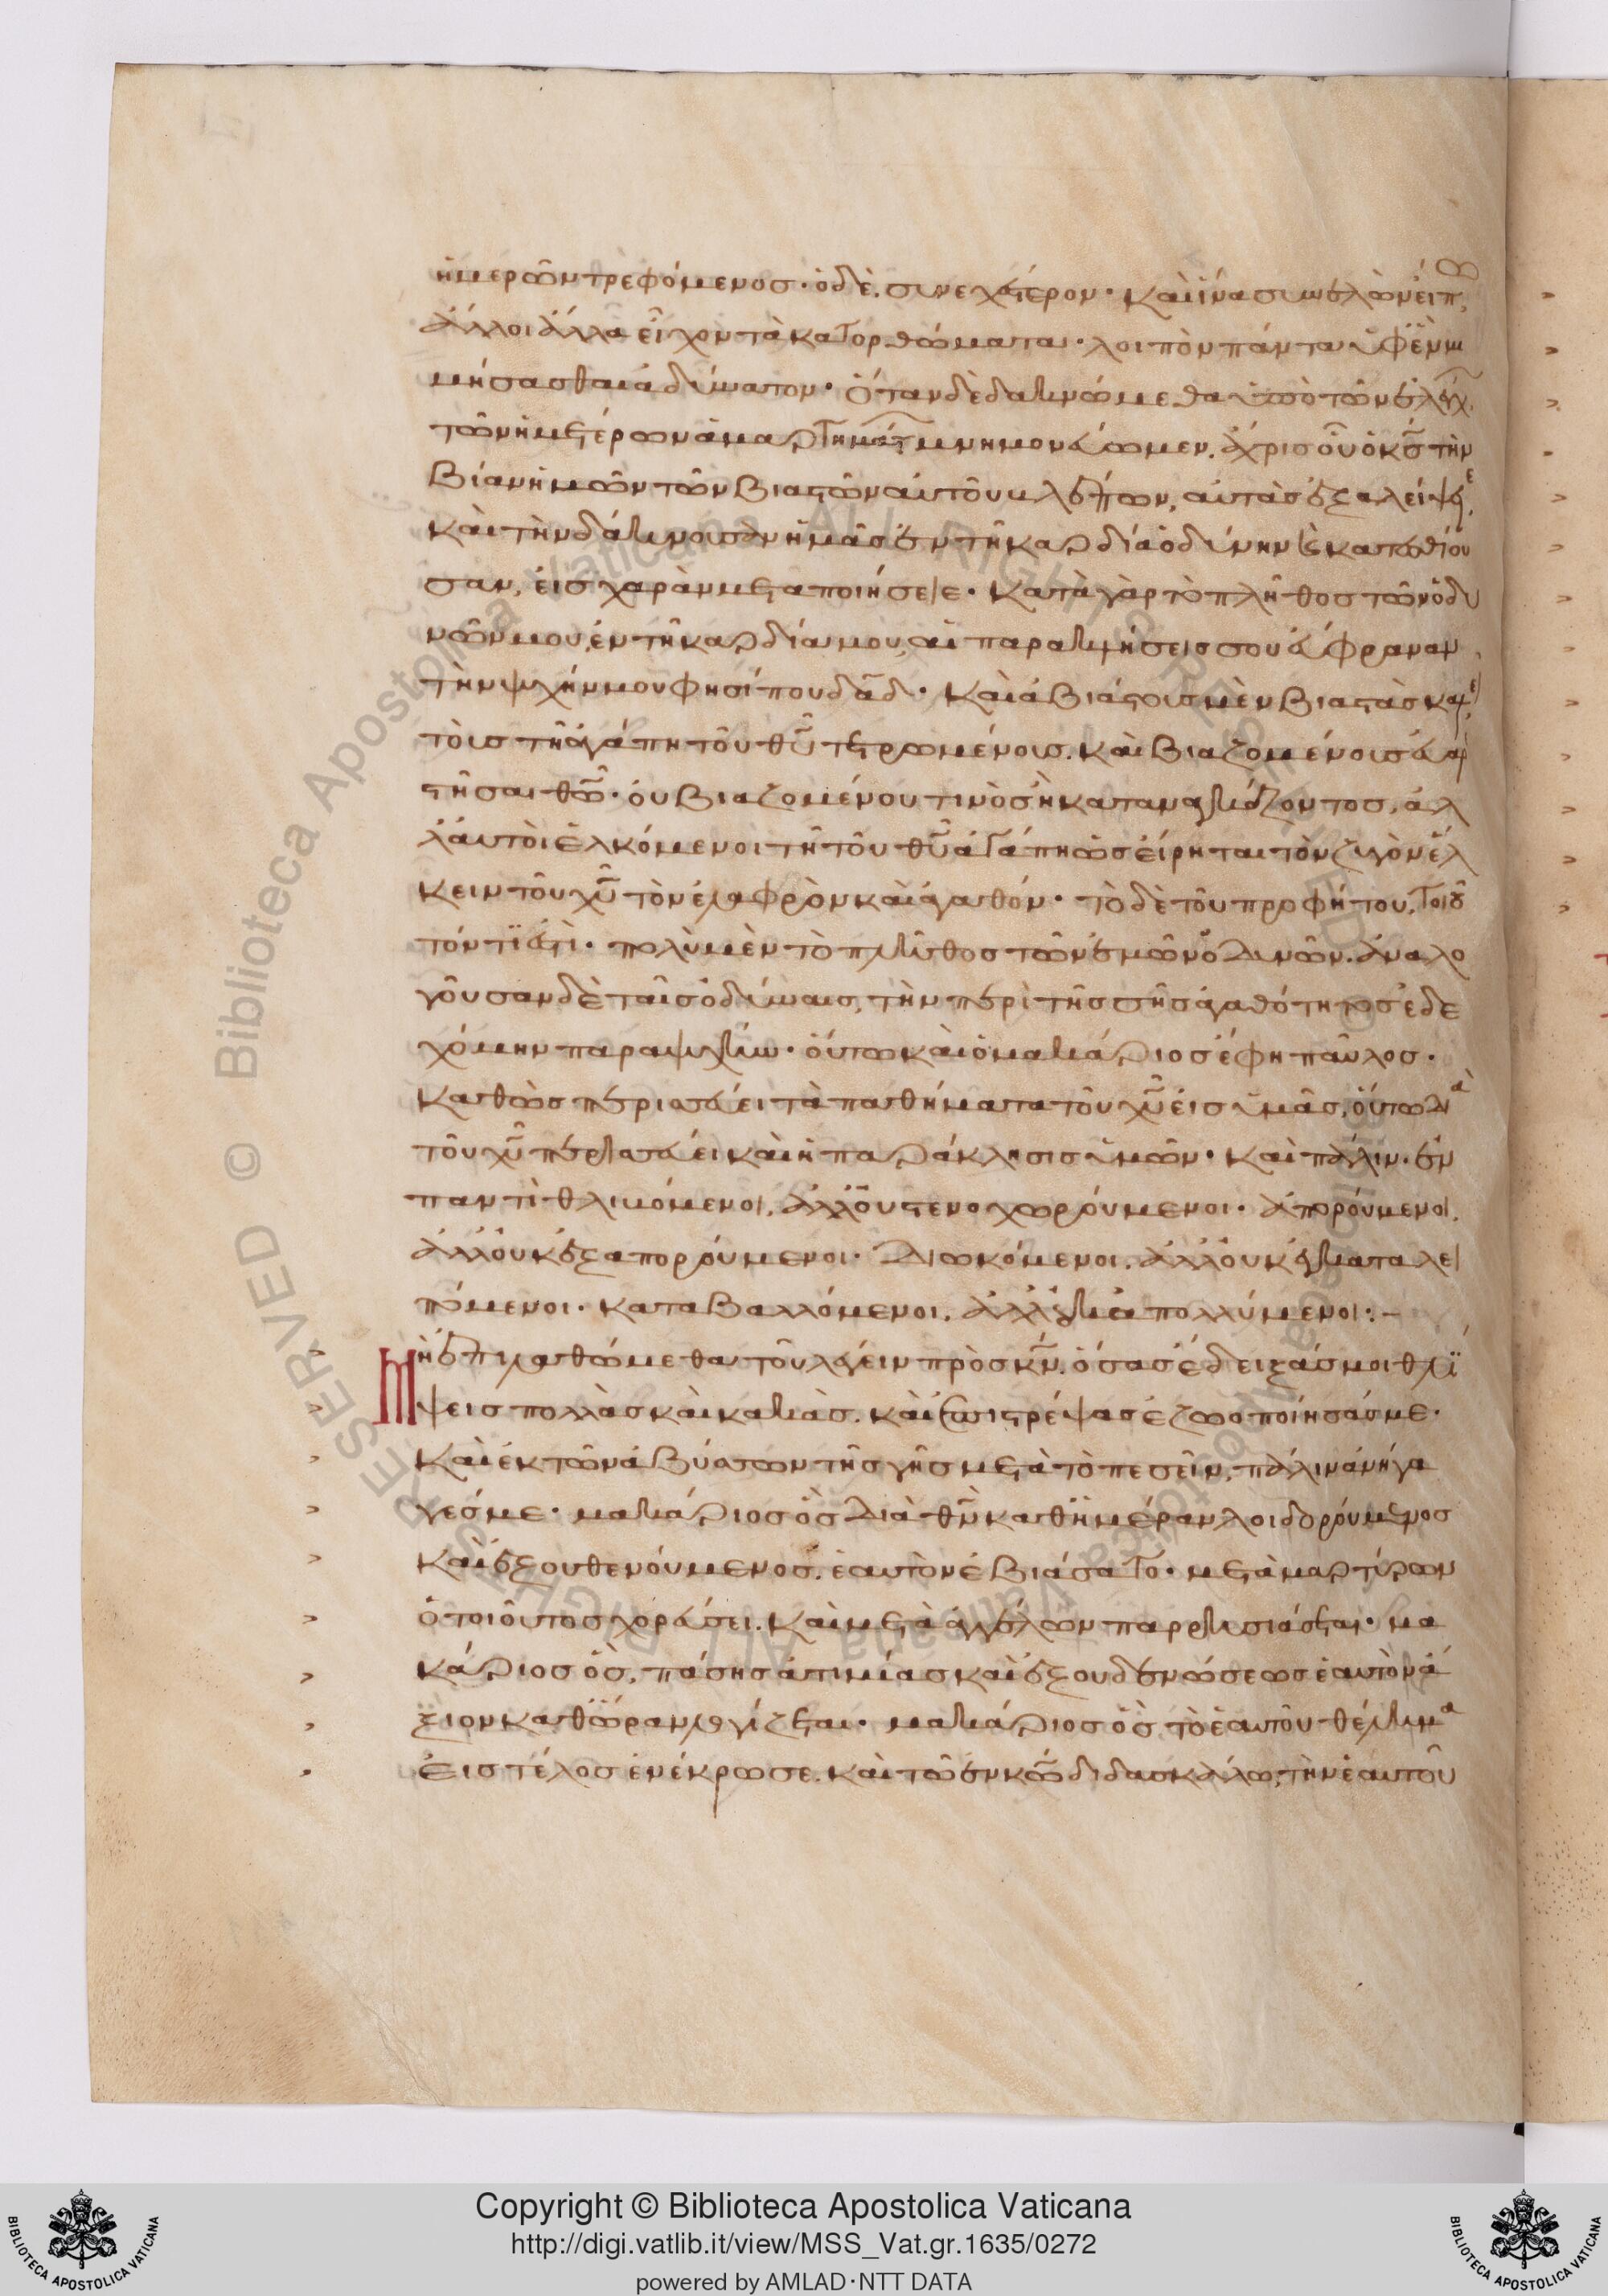 ἡμερῶν τρεφόμενος· ὁ δὲ, συνεχέστερον· καὶ ἵνα συνελὼν εἴπω,
ἄλλοι ἄλλα εἶχον τὰ κατορθώματα· λοιπὸν πάντα ὑφ' ἓν μι
μήσασθαι ἀδύνατον· ὅταν δὲ δακνώμεθα ὑπὸ τῶν ἐλέγχ
τῶν ἡμετέρων ἁμαρτημάτ μνημονεύωμεν, ἄχρις οὗ ὁ κς τὴν
βίαν ἡμῶν τῶν βιαστῶν αὐτοῦ βλέπων, αὐτὰς ἐξαλείψῃ,
καὶ τὴν δάκνουσαν ἡμᾶς ἐν τῇ καρδία ὀδύνην κατεσθίου
σαν, εἰς χαρὰν μεταποιήσειε· κατὰ γὰρ τὸ πλῆθος τῶν ὀδυ
νῶν μου, ἐν τῇ καρδία μου, αἱ παρακλήσεις σου εὔφραναν
τὴν ψυχήν μου φησί που δᾶδ· καὶ
τοῖς τῇ ἀγάπη τοῦ θῦ τετρωμένοις. καὶ βιαζομένοις εὐαρε
στῆσαι θῶ· οὐ βιαζομένου τινὸς ἢ καταναγκάζοντος, ἀλ
λ' αὐτοὶ ἑλκόμενοι τῇ τοῦ θῦ ἀγάπη ὡς εἴρηται τὸν ζυγὸν ἕλ
κειν τοῦ χῦ τὸν ἐλαφρὸν καὶ ἀγαθόν· τὸ δὲ τοῦ προφήτου, τοιοῦ
τόν τι ἐστὶ· πολὺ μὲν τὸ πλῆθος τῶν ἐμῶν ὀδυνῶν. ἀναλο
γοῦσαν δὲ ταῖς ὀδύναις, τὴν περὶ τῆς σῆς ἀγαθότητος ἐδε
χόμην παραψυχήν· οὕτω καὶ ὁ μακάριος ἔφη παῦλος·
καθὼς περισσεύει τὰ παθήματα τοῦ χῦ εἰς ὑμᾶς, οὕτω διὰ
τοῦ χῦ περισσεύει καὶ ἡ παράκλησις ὑμῶν· καὶ πάλιν· ἐν
παντὶ θλιβόμενοι, ἀλλ' οὐ στενοχωρούμενοι· ἀπορούμενοι,
ἀλλ' οὐκ ἐξαπορούμενοι· διωκόμενοι, ἀλλ' οὐκ ἐγκαταλει
πόμενοι· καταβαλλόμενοι, ἀλλ' οὐκ ἀπολλύμενοι:–
Μὴ ἐπιλαθώμεθα τοῦ λέγειν πρὸς κν, ὅσας ἔδειξάς μοι θλί
ψεις πολλὰς καὶ κακὰς. καὶ ἐπιστρέψας ἐζωοποίησάς με·
καὶ ἐκ τῶν ἀβύσσων τῆς γῆς μετὰ τὸ πεσεῖν, πάλιν ἀνήγα
γές με· μακάριος ὃς διὰ θν καθ' ἡμέραν λοιδορούμενος
καὶ ἐξουθενούμενος, ἑαυτὸν ἐβιάσατο· μετὰ μαρτύρων
ὁ τοιοῦτος χορεύσει. καὶ μετὰ ἀγγέλων παρρησιάσεται· μα
κάριος ὃς, πάσης ἀτιμίας καὶ ἐξουδενώσεως ἑαυτὸν ἄ
ξιον καθ' ὥραν λογίζεται· μακάριος ὃς, τὸ ἑαυτοῦ θέλημα
εἰς τέλος ἐνέκρωσε. καὶ τῶ ἐν κω διδασκάλω, τὴν ἑαυτοῦ
Copyright © Biblioteca Apostolica Vaticana
http://digi.vatlib.it/view/MSS_Vat.gr.1635/0272
powered by AMLAD·NTT DATA